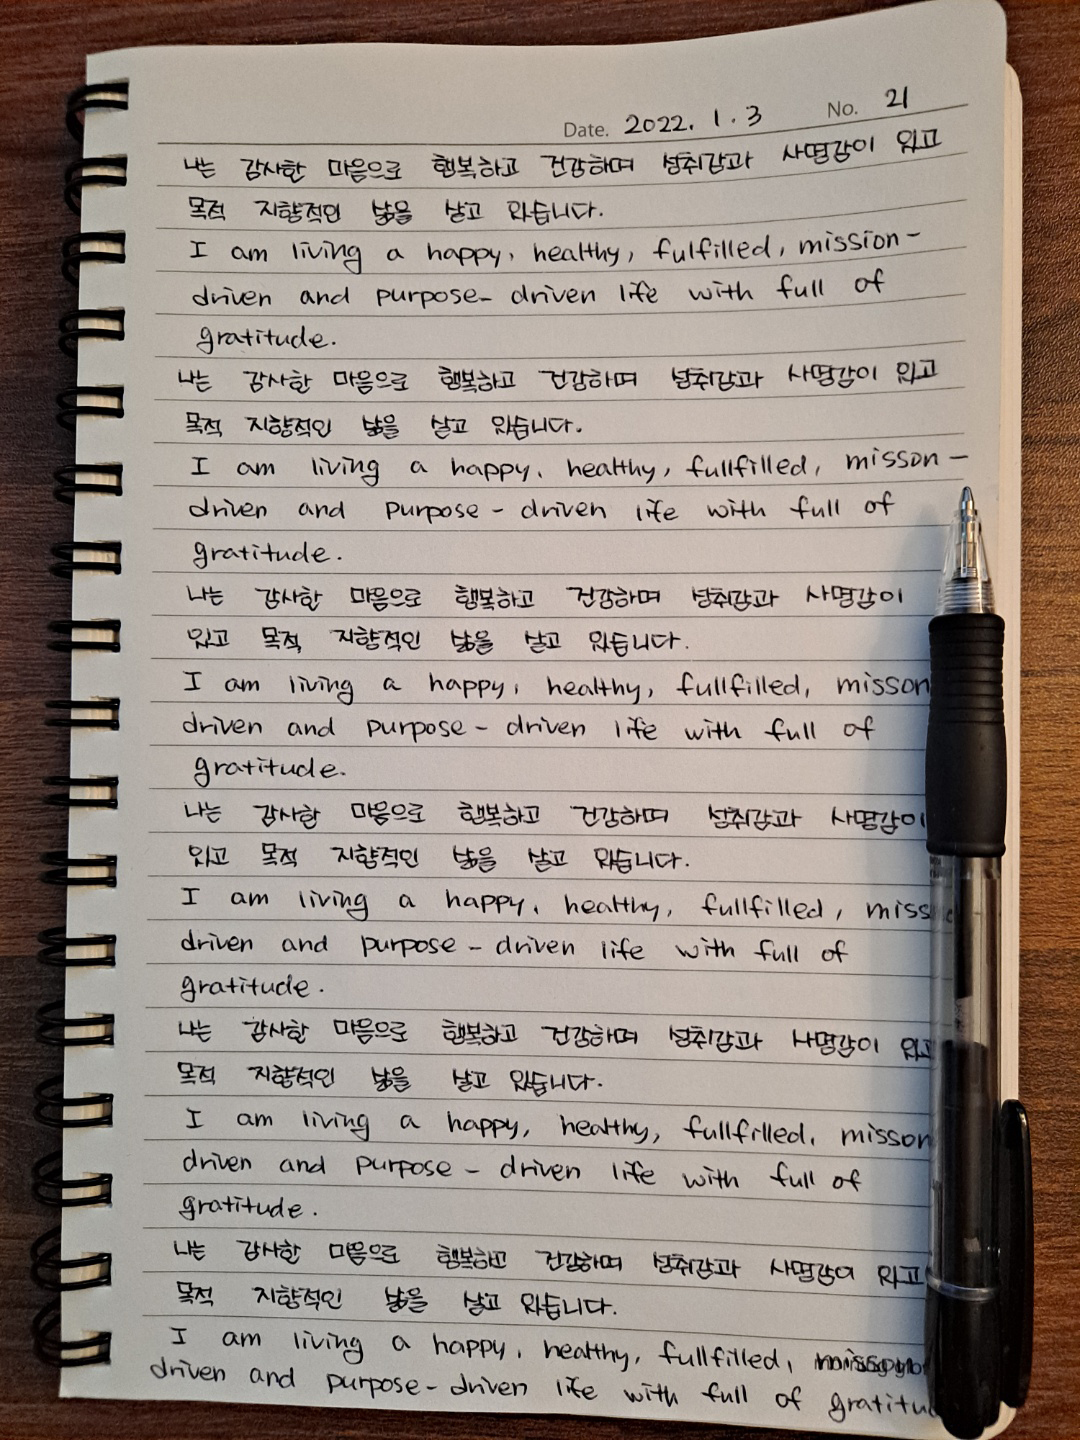 Date. 2022. 1. 3 No. 21
나는 감사한 마음으로 행복하고 건강하며 성취감과 사명감이 있고
목적 지향적인 삶을 살고 있습니다.
I am living a happy, healthy, fulfilled, mission-
driven and purpose-driven life with full of
gratitude.
나는 감사한 마음으로 행복하고 건강하며 성취감과 사명감이 있고
목적 지향적인 삶을 살고 있습니다.
I am living a happy, healthy, fullfilled, misson-
driven and purpose-driven life with full of
gratitude.
나는 감사한 마음으로 행복하고 건강하며 성취감과 사명감이
있고 목적 지향적인 삶을 살고 있습니다.
I am living a happy, healthy, fullfilled, misson
driven and purpose-driven life with full of
gratitude.
나는 감사한 마음으로 행복하고 건강하며 성취감과 사명감이
있고 목적 지향적인 삶을 살고 있습니다.
I am living a happy, healthy, fullfilled,
driven and purpose-driven life with full of
gratitude.
나는 감사한 마음으로 행복하고 건강하며 성취감과 사명감이 있고
목적 지향적인 삶을 살고 있습니다.
I am living a happy, healthy, fullfilled, misson
driven and purpose-driven life with full of
gratitude.
나는 감사한 마음으로 행복하고 건강하며 성취감과 사명감이 있고
목적 지향적인 삶을 살고 있습니다.
I am living a happy, healthy, fullfilled,
driven and purpose-driven life with full of